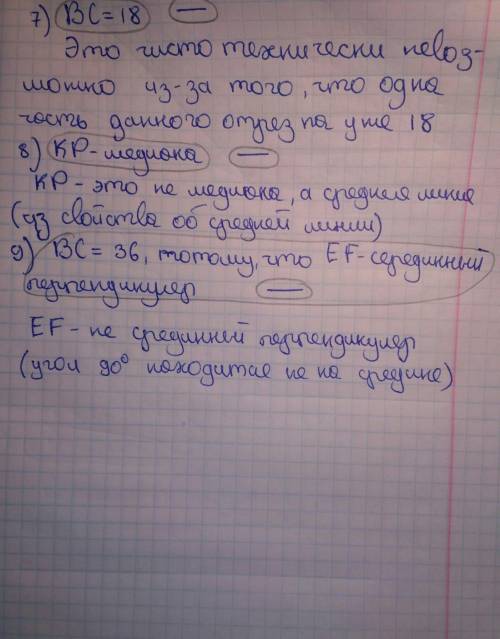 7) BC = 18 —
Это чисто технически невоз-
можно из-за того, что одна
часть данного отрезка уже 18
8) КР - медиана —
КР - это не медиана, а средняя линия
(из свойства об средней линии)
9) BC = 36, потому, что EF - серединный
перпендикуляр —
EF - не срединней перпендикуляр
(угол 90° находится не на средине)